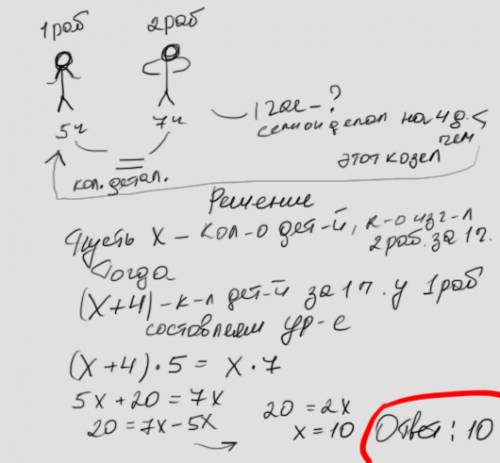 1 раб 2 раб
5ч 7ч
1 час - ?
делал на 4 д. <
чем
этот козел
кол. детал.
Решение
Пусть x - кол-о дет-й, к-о изг-л
2 раб. за 1 ч.
Тогда
(x+4) - к-л дет-й за 1 ч. у 1 раб
составляем ур-е
(x+4)·5 = x·7
5x+20 = 7x
20 = 7x-5x
20 = 2x
x = 10
Ответ: 10